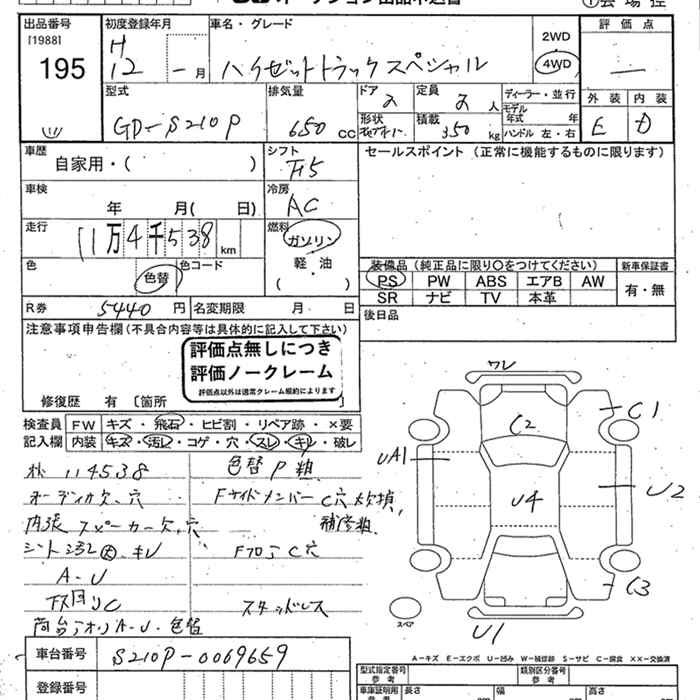 出品番号
[1988]
195
初度登録年月
H
12 - 月
車名・グレード
ハイゼットトラックスペシャル
2WD
4WD
評価点
―
型式
GD-S210P
排気量
650 cc
ドア
2
定員
2 人
形状
積載
350 kg
ディーラー・並行
モデル
年式 年
ハンドル 左・右
外装 内装
E D
車歴
自家用・( )
シフト
F5
セールスポイント (正常に機能するものに限ります)
車検
年 月( 日)
冷房
AC
走行
11万4千538 km
燃料
ガソリン
軽・油
( ・ )
色
色替
色コード
装備品 (純正品に限り○をつけてください)
新車保証書
PS PW ABS エアB AW
SR ナビ TV 本革
有・無
R券 5440 円
名変期限 月 日
後日品
注意事項申告欄(不具合内容等は具体的に記入して下さい)
評価点無しにつき
評価ノークレーム
評価点以外は通常クレーム規約によります
修復歴 有 [箇所 ]
検査員
記入欄
FW キズ・飛石・ヒビ割・リペア跡・×要
内装 キズ・汚レ・コゲ・穴・スレ・キレ・破レ
114538
オーディオ欠、穴
内張 スピーカー欠、穴
シートヨゴレ大、キレ
A-U
下回りC
荷台アオリA-U・色替
色替P粗
FサイドメンバーC穴欠損、
補修粗
FフロアC穴
スタッドレス
ワレ
C1
C2
UA1
U4
U2
C3
U1
スペア
A-キズ E-エクボ U-凹み W-補修跡 S-サビ C-腐食 XX-交換済
車台番号 S210P-0069659
登録番号
型式指定番号
参考
類別区分番号
参考
車庫証明用
参考
長さ
幅
高さ